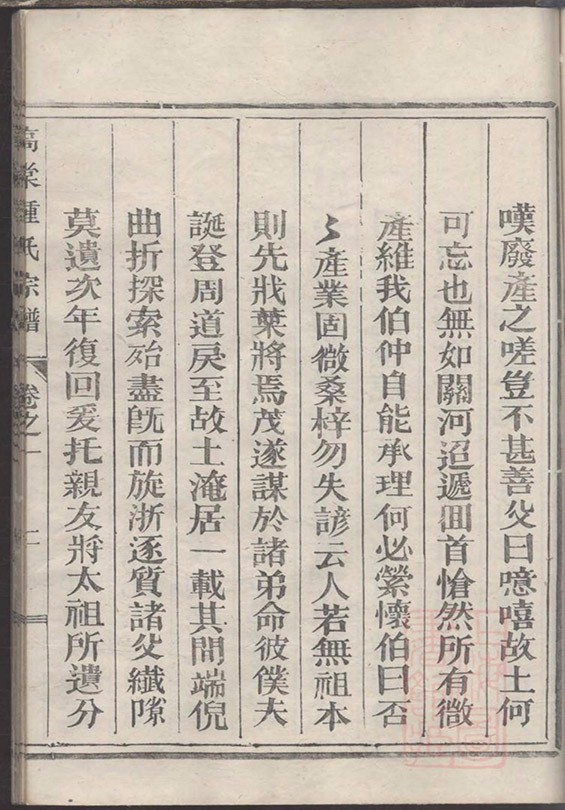 嘆廢產之嗟豈不甚善父曰噫嘻故土何
可忘也無如關河迢遞回首愴然所有微
產維我伯仲自能承理何必縈懷伯曰否
〻產業固微桑梓勿失諺云人若無祖本
則先戕葉將焉茂遂謀於諸弟命彼僕夫
誕登周道戾至故土淹居一載其間端倪
曲折探索殆盡旣而旋浙逐質諸父纖隙
莫遺次年復回爰托親友將太祖所遺分
高棠鍾氏宗譜 卷之一 二